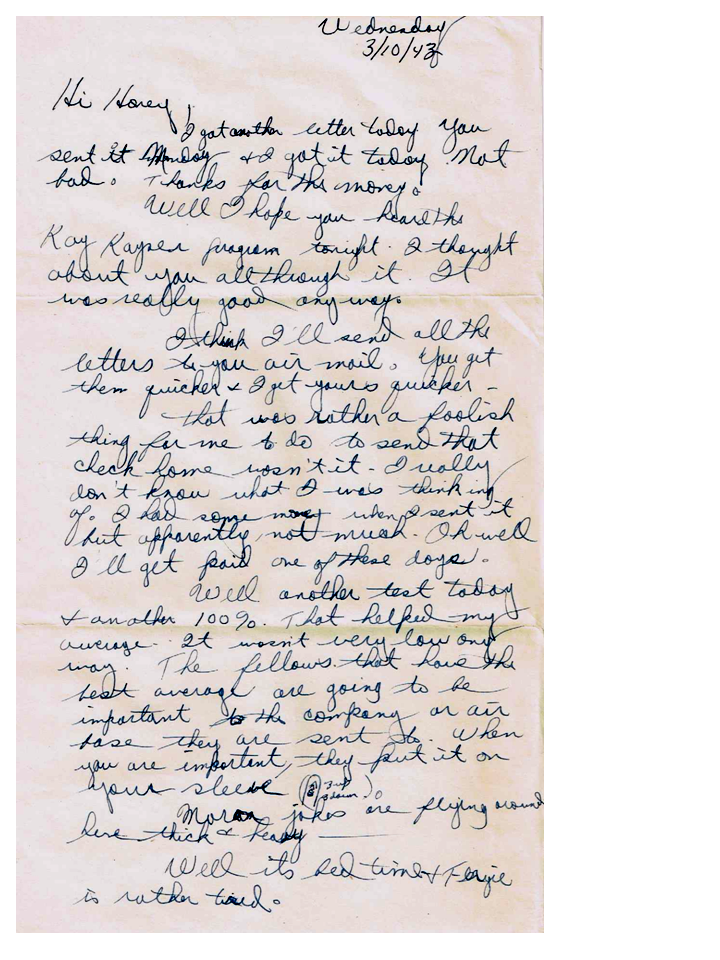 Wednesday
3/10/43
Hi Honey,
I got another letter today You
sent it Monday & I got it today Not
bad. Thanks for the money.
Well I hope you heard the
Kay Kayser program tonight. I thought
about you all through it. It
was really good anyway.
I think I'll send all the
letters to you air mail. You get
them quicker & I get yours quicker -
That was rather a foolish
thing for me to do to send that
check home wasn't it - I really
don't know what I was thinking
of. I had some money when I sent it
but apparently not much. Oh well
I'll get paid one of these days.
Well another test today
& another 100%. That helped my
average. It wasn't very low any
way. The fellows that have the
best average are going to be
important to the company or air
base they are sent to. When
you are important, they put it on
your sleeve ( 3 up
3 down ).
Moron jokes are flying around
here thick & heavy
Well its bed time & Fergie
is rather tired.